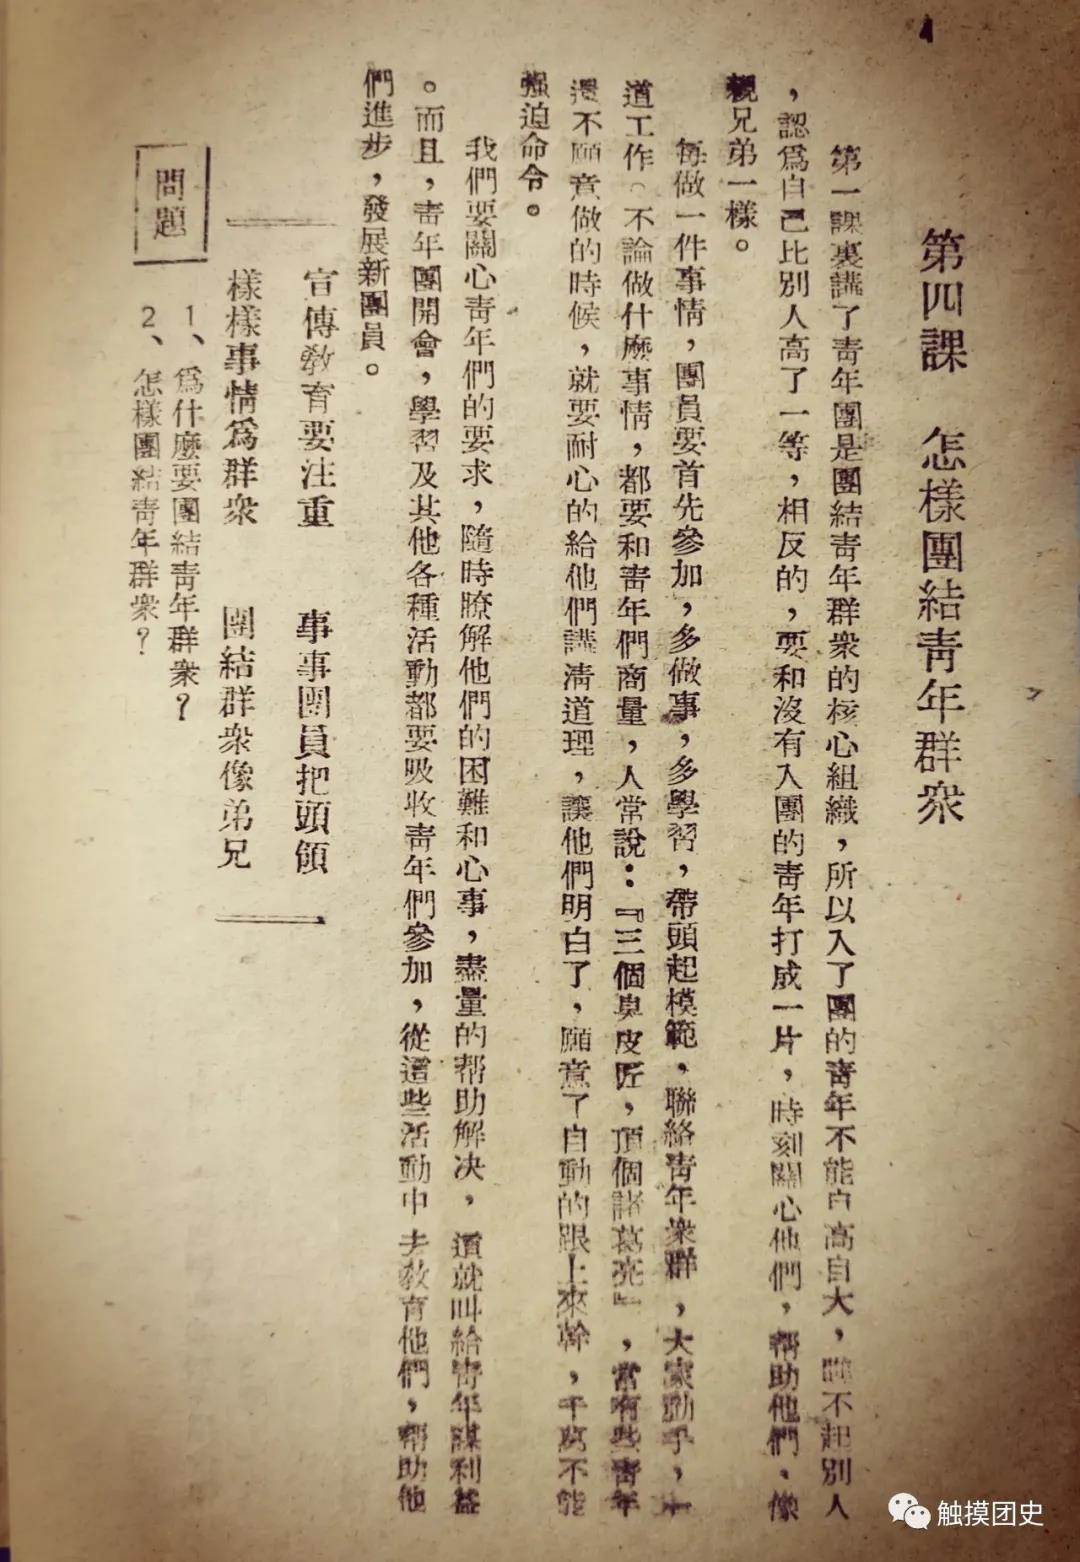 第四課　怎樣團結青年群眾
第一課裏講了青年團是團結青年群眾的核心組織，所以入了團的青年不能自高自大，瞧不起別人
，認爲自己比別人高了一等，相反的，要和沒有入團的青年打成一片，時刻關心他們，帮助他們、像
親兄弟一樣。
每做一件事情，團員要首先參加，多做事，多學習，帶頭起模範，聯絡青年眾群，大家動手，
道工作。不論做什麽事情，都要和青年們商量，人常說：『三個臭皮匠，頂個諸葛亮』，當有些青年
還不願意做的時候，就要耐心的給他們講淸道理，讓他們明白了，願意了自動的跟上來幹，千萬不能
强迫命令。
我們要關心青年們的要求，隨時瞭解他們的困難和心事，盡量的帮助解决，這就叫給青年謀利益
。而且，青年團開會，學習及其他各種活動都要吸收青年們參加，從這些活動中去教育他們，帮助他
們進步，發展新團員。
宣傳敎育要注重　事事團員把頭領
樣樣事情爲群眾　團結群眾像弟兄
問題
1、爲什麽要團結青年群眾？
2、怎樣團結青年群眾？
触摸团史